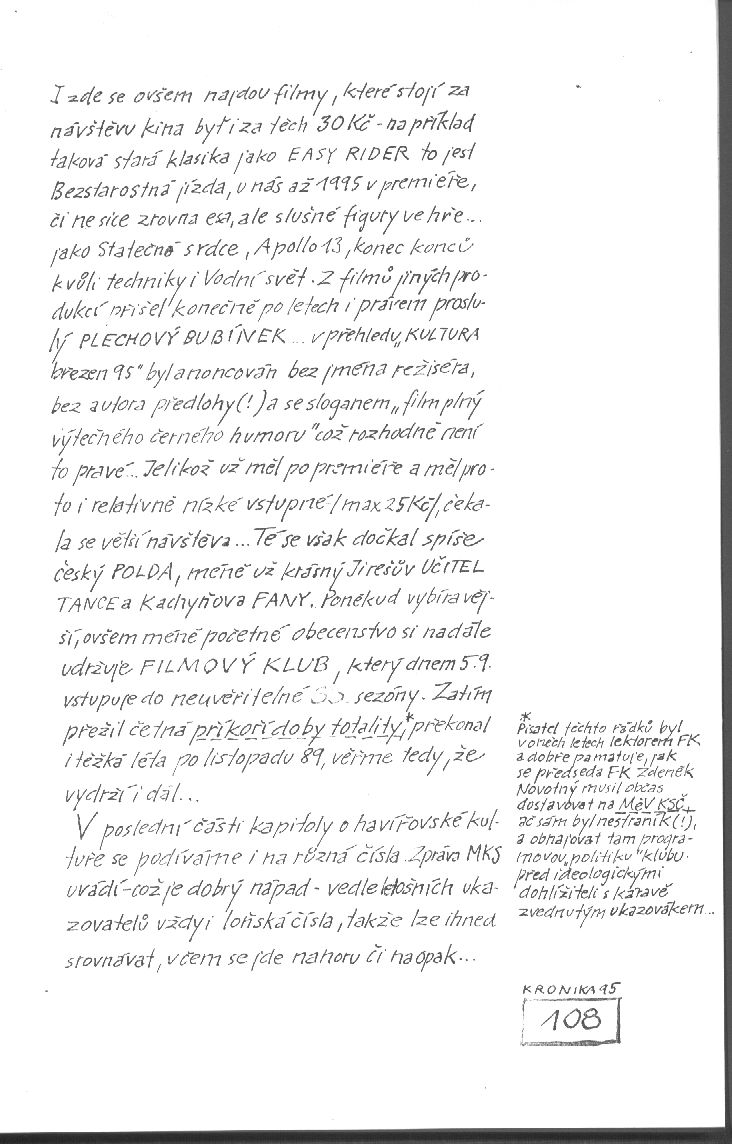 I zde se ovšem najdou filmy, které stojí za
návštěvu kina byť i za těch 30 Kč - například
taková stará klasika jako EASY RIDER to jest
Bezstarostná jízda, u nás až 1995 v premiéře,
či ne sice zrovna esa, ale slušné figury ve hře...
jako Statečné srdce, Apollo 13, konec konců
kvůli techniky i Vodní svět. Z filmů jiných pro-
dukcí přišel konečně po letech i právem proslu-
lý PLECHOVÝ BUBÍNEK... v přehledu „KULTURA
březen 95" byl anoncován bez jména režiséra,
bez autora předlohy (!) a se sloganem „film plný
výtečného černého humoru" což rozhodně není
to pravé... Jelikož už měl po premiéře a měl pro-
to i relativně nízké vstupné /max 25 Kč/, čeka-
la se větší návštěva... Té se však dočkal spíše
český POLDA, méně už krásný Jirešův UČITEL
TANCE a Kachyňova FANY. Poněkud vybíravěj-
ší, ovšem méně početné obecenstvo si nadále
udržuje FILMOVÝ KLUB, který dnem 5.9.
vstupuje do neuvěřitelné sezóny. Zatím
přežil četná příkoří doby totality,* překonal
i těžká léta po listopadu 89, věřme tedy, že
vydrží i dál...
V poslední části kapitoly o havířovské kul-
tuře se podíváme i na různá čísla. Zpráva MKS
uvádí - což je dobrý nápad - vedle letošních uka-
zovatelů vždy i loňská čísla, takže lze ihned
srovnávat, v čem se jde nahoru či naopak...
*
Pisatel těchto řádků byl
v oněch letech lektorem FK
a dobře pamatuje, jak
se předseda FK Zdeněk
Novotný musil občas
dostavovat na MěV KSČ,
ač sám byl nestraník (!),
a obhajovat tam progra-
movou „politiku" klubu
před ideologickými
dohlížiteli s káravě
zvednutým ukazovákem...
KRONIKA 95
108